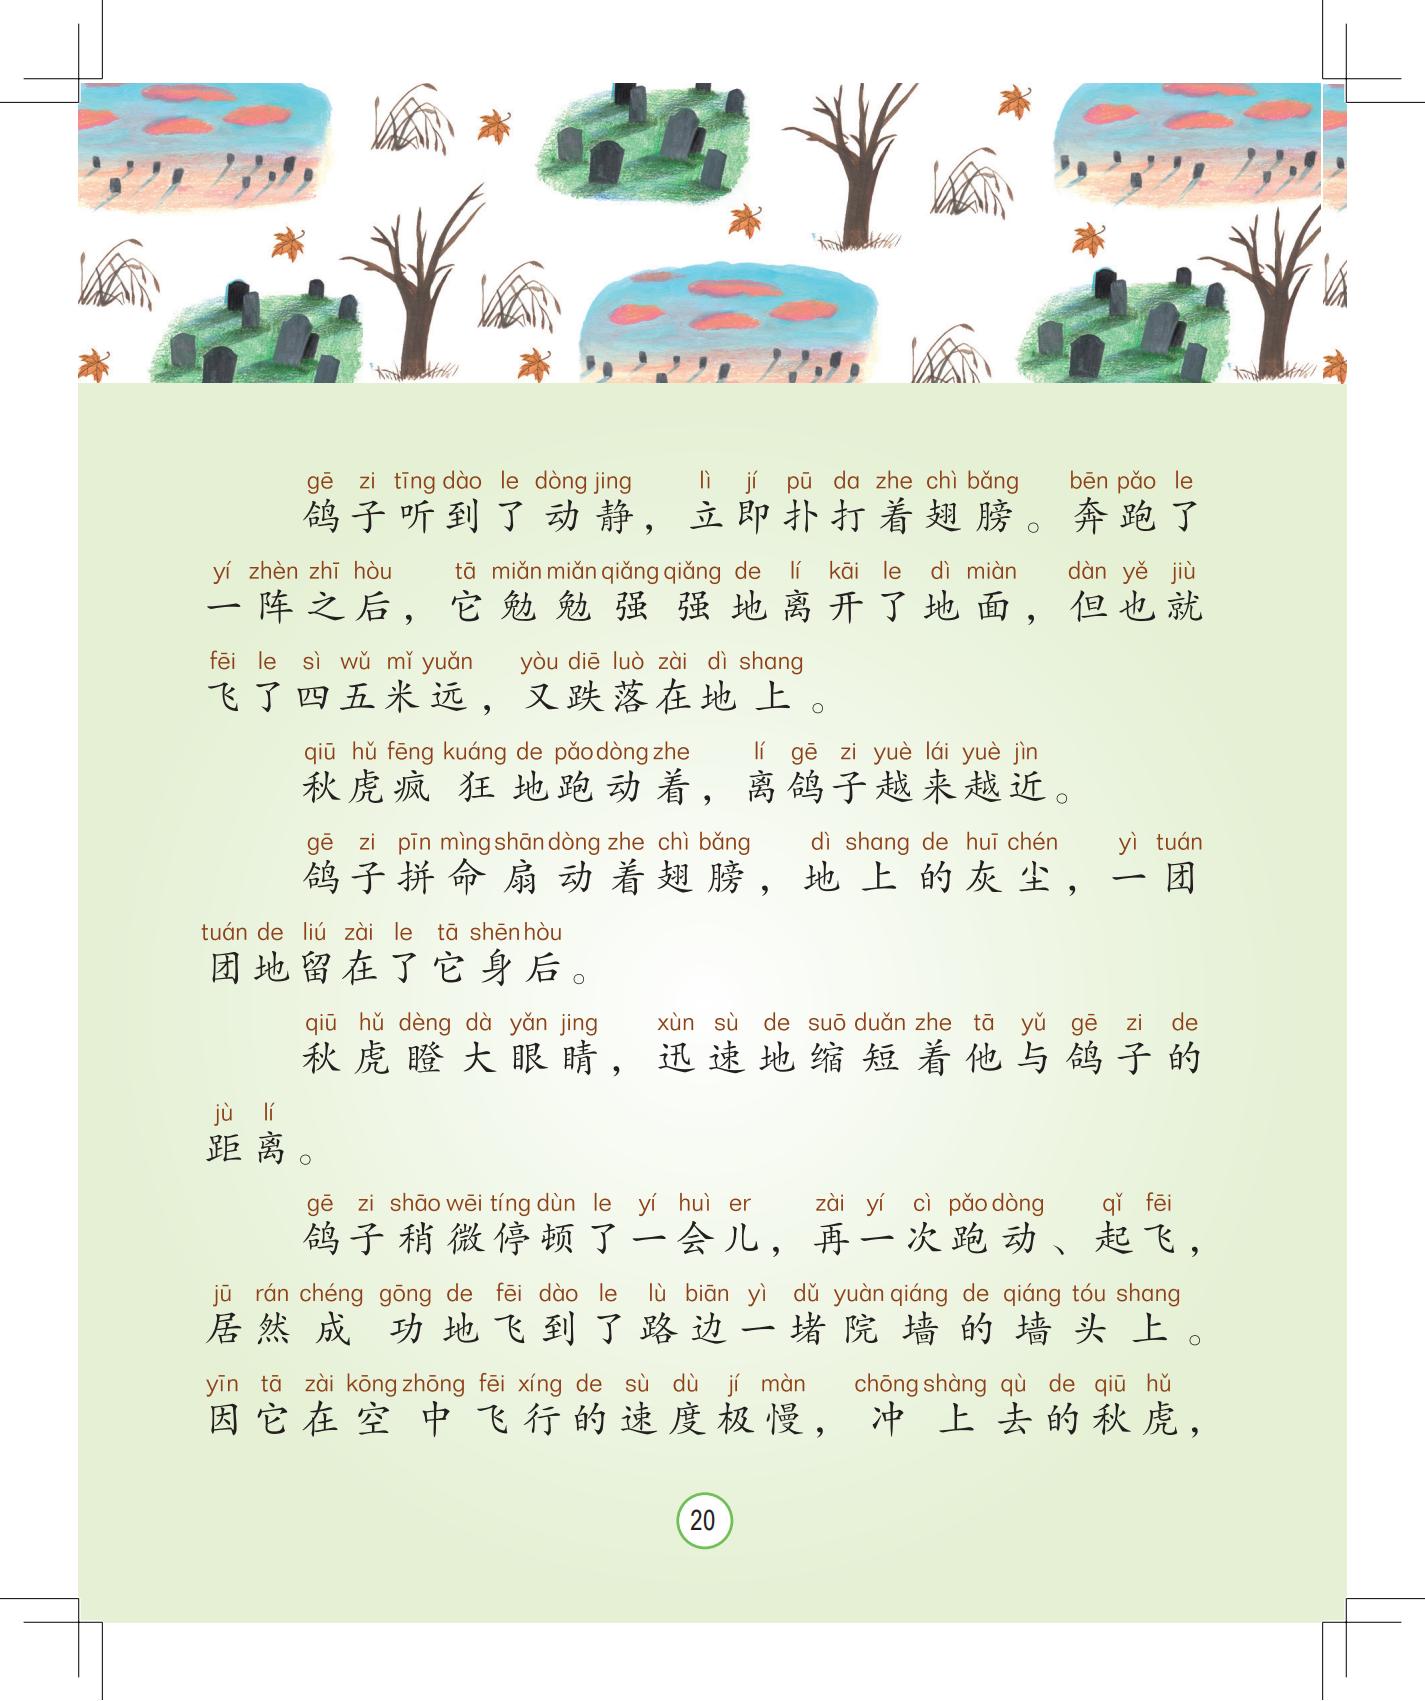 gē zi tīng dào le dòng jing lì jí pū da zhe chì bǎng bēn pǎo le
鸽子听到了动静，立即扑打着翅膀。奔跑了
yí zhèn zhī hòu tā miǎn miǎn qiǎng qiǎng de lí kāi le dì miàn dàn yě jiù
一阵之后，它勉勉强强地离开了地面，但也就
fēi le sì wǔ mǐ yuǎn yòu diē luò zài dì shang
飞了四五米远，又跌落在地上。
qiū hǔ fēng kuáng de pǎo dòng zhe lí gē zi yuè lái yuè jìn
秋虎疯狂地跑动着，离鸽子越来越近。
gē zi pīn mìng shān dòng zhe chì bǎng dì shang de huī chén yì tuán
鸽子拼命扇动着翅膀，地上的灰尘，一团
tuán de liú zài le tā shēn hòu
团地留在了它身后。
qiū hǔ dèng dà yǎn jing xùn sù de suō duǎn zhe tā yǔ gē zi de
秋虎瞪大眼睛，迅速地缩短着他与鸽子的
jù lí
距离。
gē zi shāo wēi tíng dùn le yí huì er zài yí cì pǎo dòng qǐ fēi
鸽子稍微停顿了一会儿，再一次跑动、起飞，
jū rán chéng gōng de fēi dào le lù biān yì dǔ yuàn qiáng de qiáng tóu shang
居然成功地飞到了路边一堵院墙的墙头上。
yīn tā zài kōng zhōng fēi xíng de sù dù jí màn chōng shàng qù de qiū hǔ
因它在空中飞行的速度极慢，冲上去的秋虎，
20